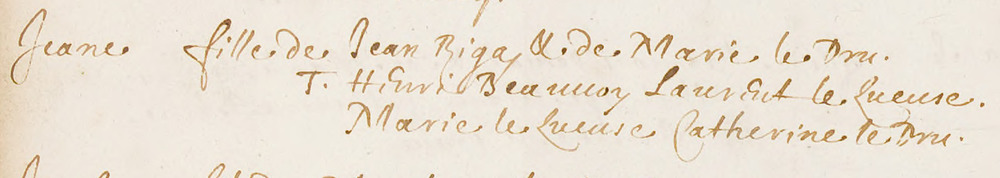 Jeane fille de Jean Bigay & de Marie le Dru.
T. Henri Beaunoy Laurent le Queuse.
Marie le Queuse Catherine le Dru.